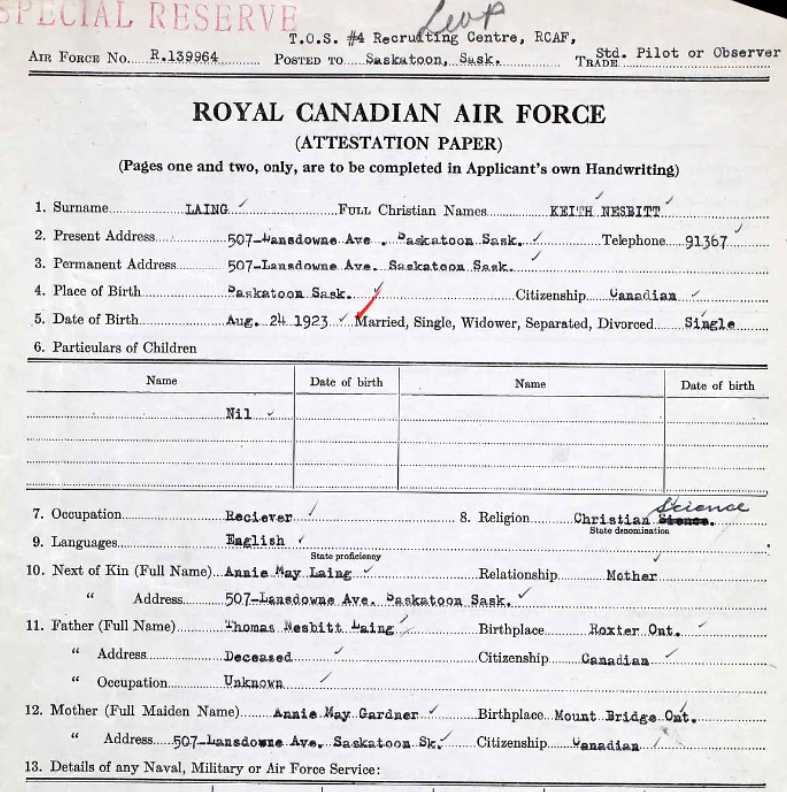 SPECIAL RESERVE
T.O.S. #4 Recruiting Centre, RCAF,
AIR FORCE No. R.139964 POSTED TO Saskatoon, Sask. TRADE Std. Pilot or Observer
ROYAL CANADIAN AIR FORCE
(ATTESTATION PAPER)
(Pages one and two, only, are to be completed in Applicant's own Handwriting)
1. Surname LAING FULL Christian Names KEITH NESBITT
2. Present Address 507-Lansdowne Ave. Saskatoon Sask. Telephone 91367
3. Permanent Address 507-Lansdowne Ave. Saskatoon Sask.
4. Place of Birth Saskatoon Sask. Citizenship Canadian
5. Date of Birth Aug. 24 1923 Married, Single, Widower, Separated, Divorced Single
6. Particulars of Children
Name Date of birth Name Date of birth
Nil
Science
7. Occupation Reciever 8. Religion Christian Sience.
State denomination
9. Languages English
State proficiency
10. Next of Kin (Full Name) Annie May Laing Relationship Mother
" Address 507-Lansdowne Ave. Saskatoon Sask.
11. Father (Full Name) Thomas Nesbitt Laing Birthplace Roxter Ont.
" Address Deceased Citizenship Canadian
" Occupation Unknown
12. Mother (Full Maiden Name) Annie May Gardner Birthplace Mount Bridge Ont.
" Address 507-Lansdowne Ave. Saskatoon Sk. Citizenship Canadian
13. Details of any Naval, Military or Air Force Service: